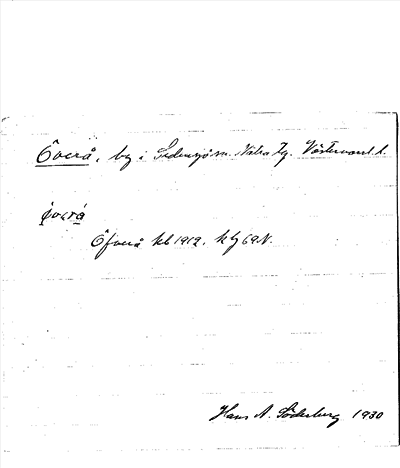 Överå, by i Sidensjö sn. Nätra tg. Västernorrl. l.
överå
Öfverå kb 1912. kbj 69N.
Hans A. Söderberg 1930